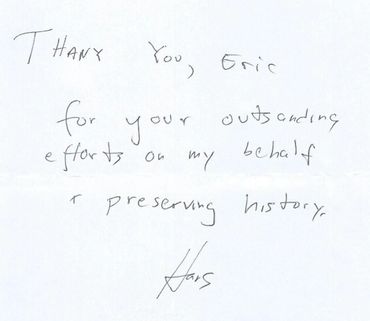 THANK You, Eric
for your outstanding
efforts on my behalf
+ preserving history.
Hans